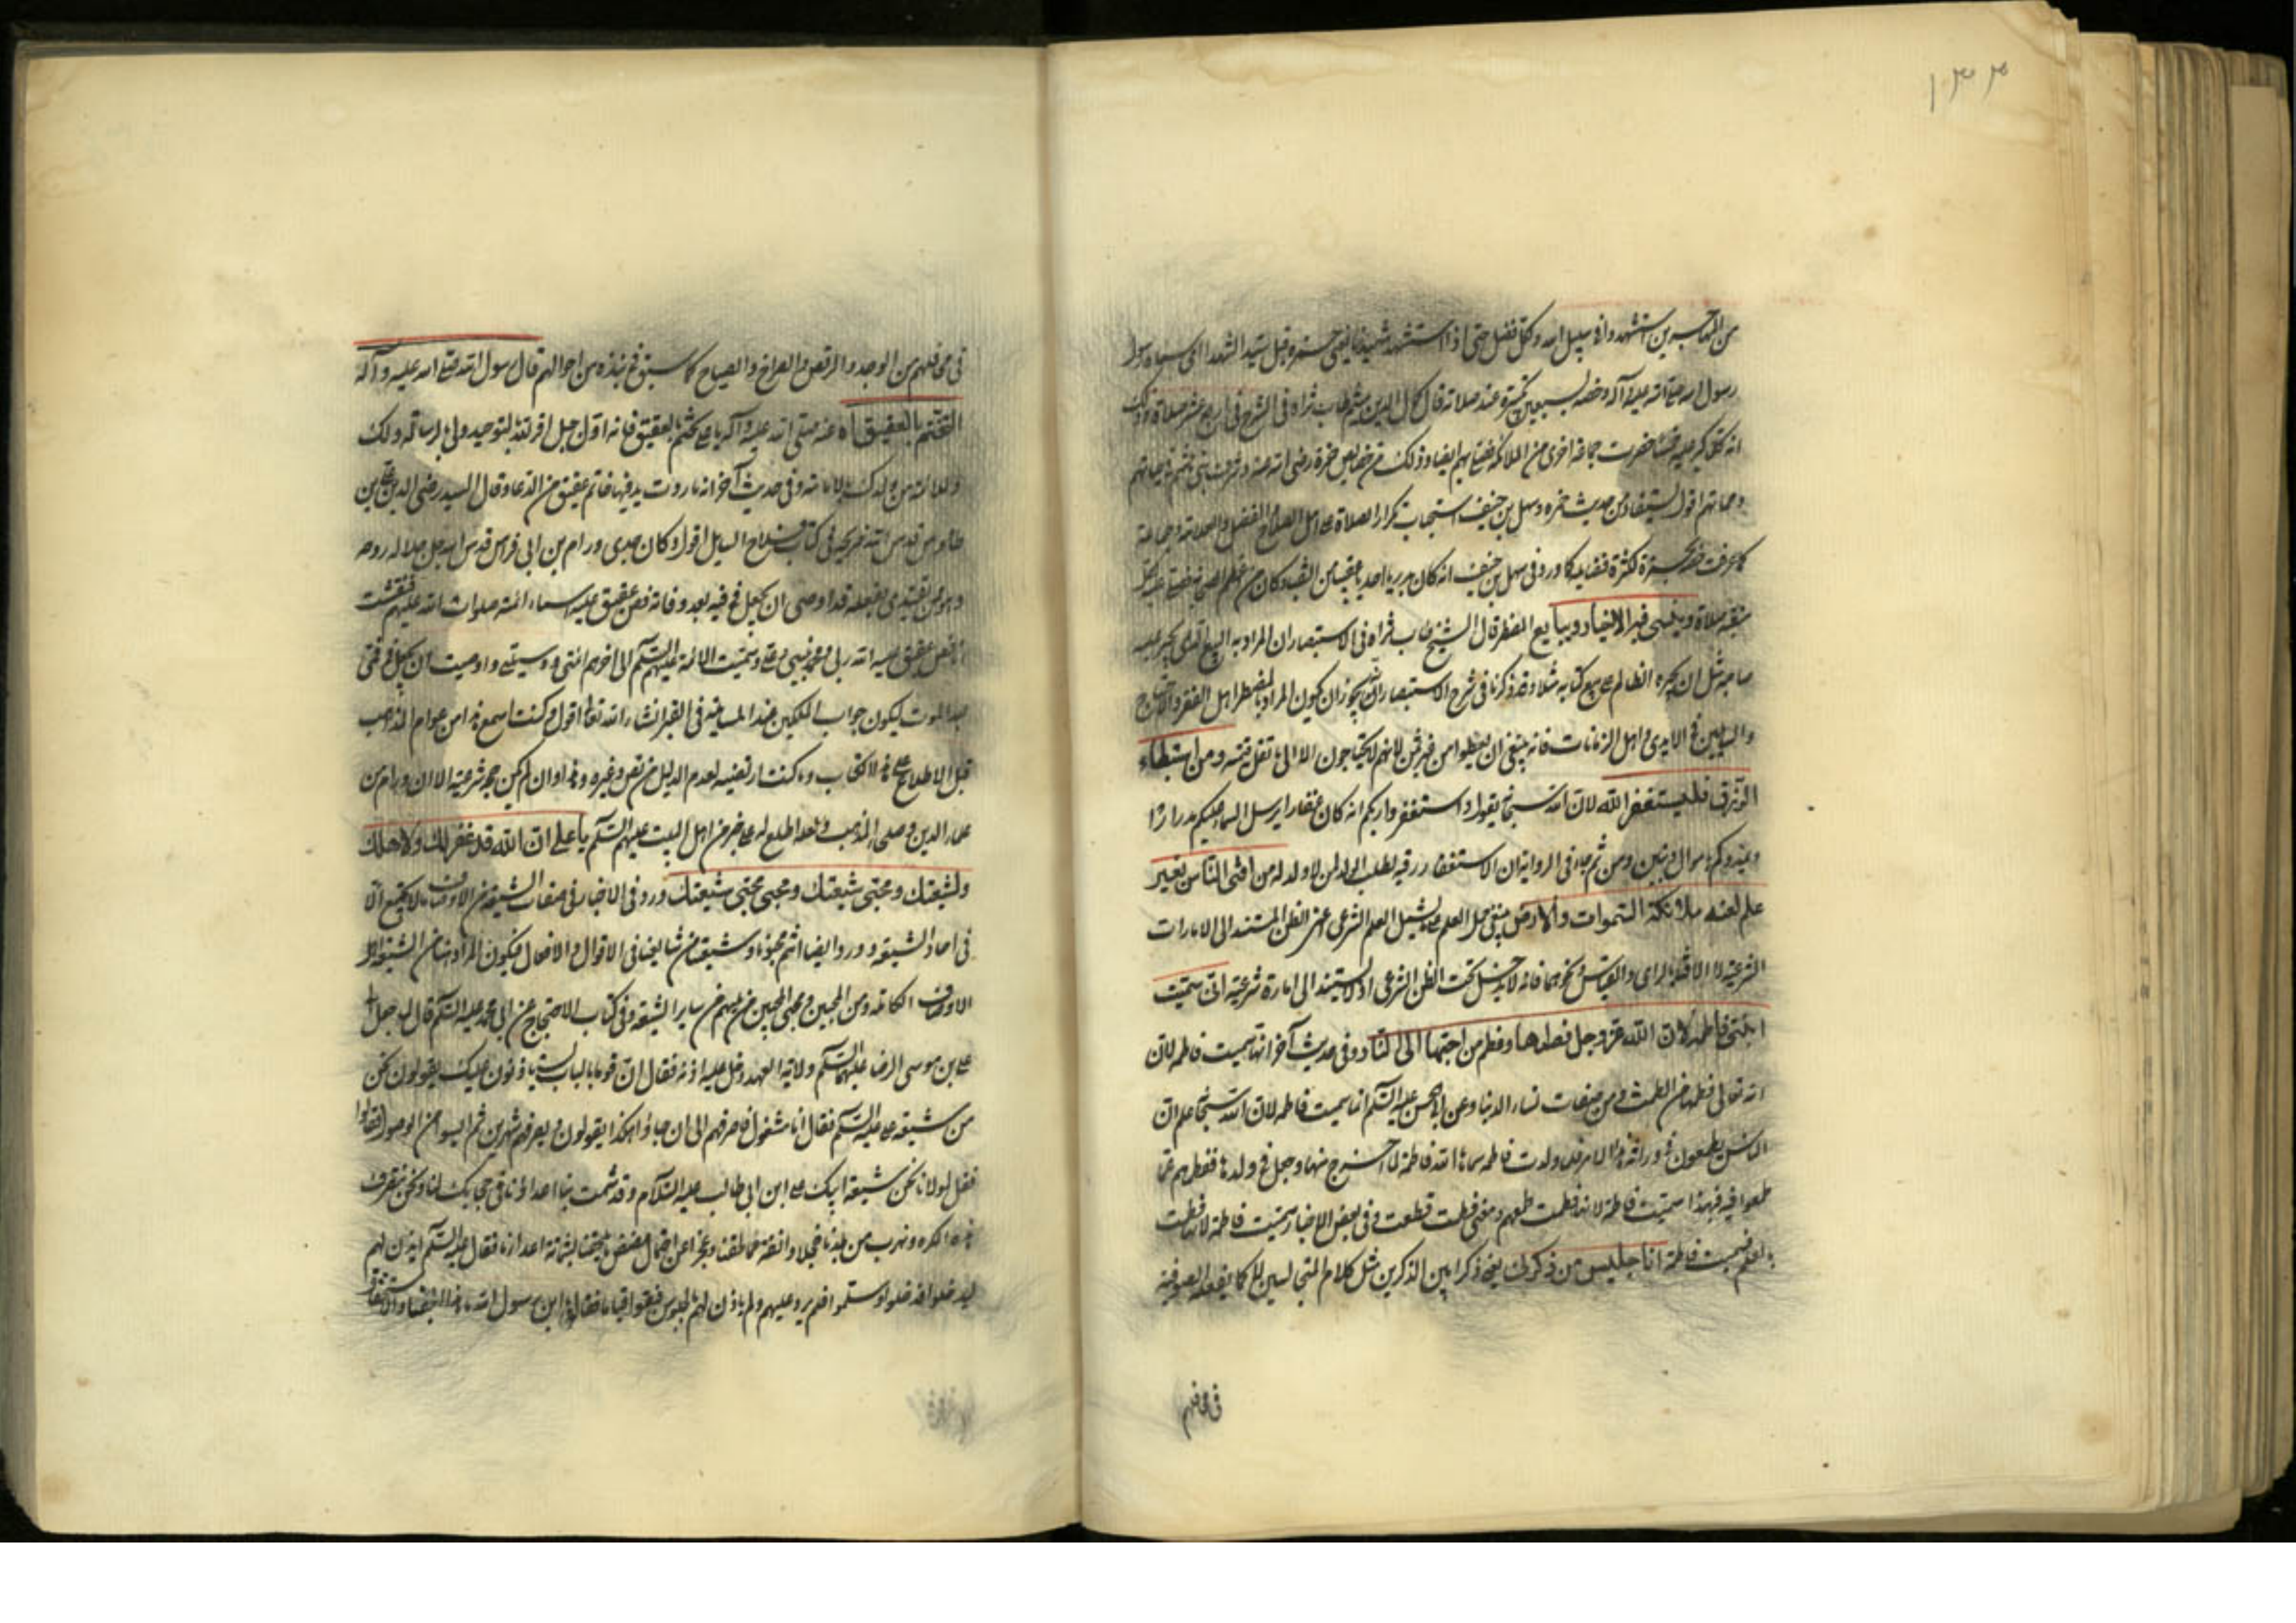 ١٣٣
من المهاجرين استشهدوا في سبيل الله وكل فضل حتى اذا استشهد شهيدنا يعني حمزة قيل سيد الشهداء
رسول الله صلى الله عليه وآله وخصه بسبعين تكبيرة عند صلاته قال كمال الدين ميثم طاب ثراه في الشرح في اربع عشر صلاة وذلك
انه كلما كبر عليه خمسا حضرت جماعة اخرى من الملائكة فصلى بهم ايضا وذلك من خصايص حمزة رضي الله عنه وشرف بني هاشم في حياتهم
ومماتهم اقول يستفاد من حديث حمزة وسهل بن حنيف استحباب تكرار الصلاة على اهل الصلاح والفضل
كما عرفت من حمزة لكثرة فضايله كما ورد في سهل بن حنيف انه كان بدريا احديا عقبيا من النقباء وكان
منقبة صلاة وينسى فيه الاخيار ويبايع المضطر قال الشيخ طاب ثراه في الاستبصار ان المراد به البيع الذي يجبر عليه
صاحبه مثل ان يجبره الظالم على بيع كتابه مثلا وقد ذكرنا في شرح الاستبصار انه يجوز ان يكون المراد بالمضطر اهل الفقر
والسايلين في الايدي واهل الزمانات فانه ينبغي ان يعطوا من غير ثمن لانهم لا يحتاجون الا الى ما تقل قيمته ومن استبطاء
الرزق فليستغفر الله لان الله سبحانه يقول واستغفروا ربكم انه كان غفارا يرسل السماء عليكم مدرارا
ويمددكم باموال وبنين ومن ثم جاء في الرواية ان الاستغفار رقية لطلب الولد لمن لا ولد له من افتى الناس بغير
علم لعنته ملائكة السموات والارض ينبغي حمل العلم على ما يشمل العلم الشرعي اعني الظن المستند الى الامارات
الشرعية لا الافتاء بالراي والقياس ونحوهما فانه لا يدخل تحت الظن الشرعي اذ لا يستند الى امارة شرعية انى سميت
ابنتي فاطمة لان الله عز وجل فطمها وفطم من احبها الى النار وفي حديث آخر انها سميت فاطمة لان
الله تعالى فطمها من الطمث ومن صفات نساء الدنيا وعن ابي الحسن عليه السلم انما سميت فاطمة لان الله سبحانه علم ان
الناس يطمعون في وراثة هذا الامر فلما ولدت فاطمة سماها الله فاطمة لما اخرج منها وجعل في ولدها ففطمهم عما
طمعوا فيه فبهذا سميت فاطمة لانها فطمت طمعهم ومعنى فطمت قطعت وفي بعض الاخبار سميت فاطمة لانها فطمت
بالعلم فسميت فاطمة انا جليس من ذكرني يعني ذكرا بين الذكرين مثل كلام المتجالسين لا كما يفعله الصوفية
في محافلهم
في محافلهم من الوجد والرقص والصراخ والصياح كما سبق في نبذه من احوالهم قال رسول الله صلى الله عليه وآله
التختم بالعقيق آه عنه صلى الله عليه وآله يا علي تختم بالعقيق فانه اول جبل اقر لله بالتوحيد ولي بالرسالة ولك
وللائمة من ولدك بالامامة وفي حديث آخر انه ما روت يد فيها خاتم عقيق من الدعا وقال السيد رضي الدين علي بن
طاوس قدس الله ضريحه في كتاب فلاح السايل اقول وكان جدي ورام بن ابي فراس قدس الله جل جلاله روحه
وهو ممن يقتدى بفعله قد اوصى ان يجعل في فيه بعد وفاته فص عقيق عليه اسماء ائمته صلوات الله عليهم فنقشت
انا فص عقيق عليه الله ربي ومحمد نبيي وعلي وسميت الائمة عليهم السلم الى آخرهم ائمتي ووسيلتي واوصيت ان يجعل في فمي
بعد الموت ليكون جواب الملكين عند المسايلة في القبر انشاء الله تعالى اقول وكنت اسمع هذا من عوام المذهب
قبل الاطلاع على هذا الكتاب وما كنت ارتضيه لعدم الدليل من نص وغيره وهذا وان لم يكن حجة شرعية الا ان ورام من
علماء الدين وصلحاء المذهب ولعله اطلع له على خبر من اهل البيت عليهم السلم يا علي ان الله قد غفر لك ولاهلك
ولشيعتك ومحبي شيعتك ومحبي محبي شيعتك ورد في الاخبار في صفات الشيعة من الاوصاف ما لا يجتمع الا
في احاد الشيعة وورد ايضا انتم محبونا وشيعتنا من شايعنا في الاقوال والافعال فيكون المراد هنا من الشيعة
الاوصاف الكاملة ومن المحبين ومحبي المحبين من يليهم من ساير الشيعة وفي كتاب الاحتجاج عن ابي محمد عليه السلم قال لما جعل
علي بن موسى الرضا عليهما السلم ولاية العهد دخل عليه آذنه فقال ان قوما بالباب يستاذنون عليك يقولون نحن
من شيعة علي عليه السلم فقال انا مشغول فاصرفهم الى ان جاؤا هكذا يقولون ويصرفهم شهرين ثم ايسوا من الوصول فقالوا
فقل لمولانا نحن شيعة ابيك علي ابن ابي طالب عليه السلام وقد شمت بنا اعداؤنا في حجابك لنا ونحن ننصرف
هذه الكرة ونهرب من بلدنا خجلا وانفة مما لحقنا وعجزا عن احتمال مضض ما يلحقنا بشماتة اعدائنا فقال عليه السلم ايذن لهم
ليدخلوا فدخلوا وسلموا فلم يرد عليهم ولم ياذن لهم بالجلوس فبقوا قياما فقالوا يا ابن رسول الله ما هذا الجفاء